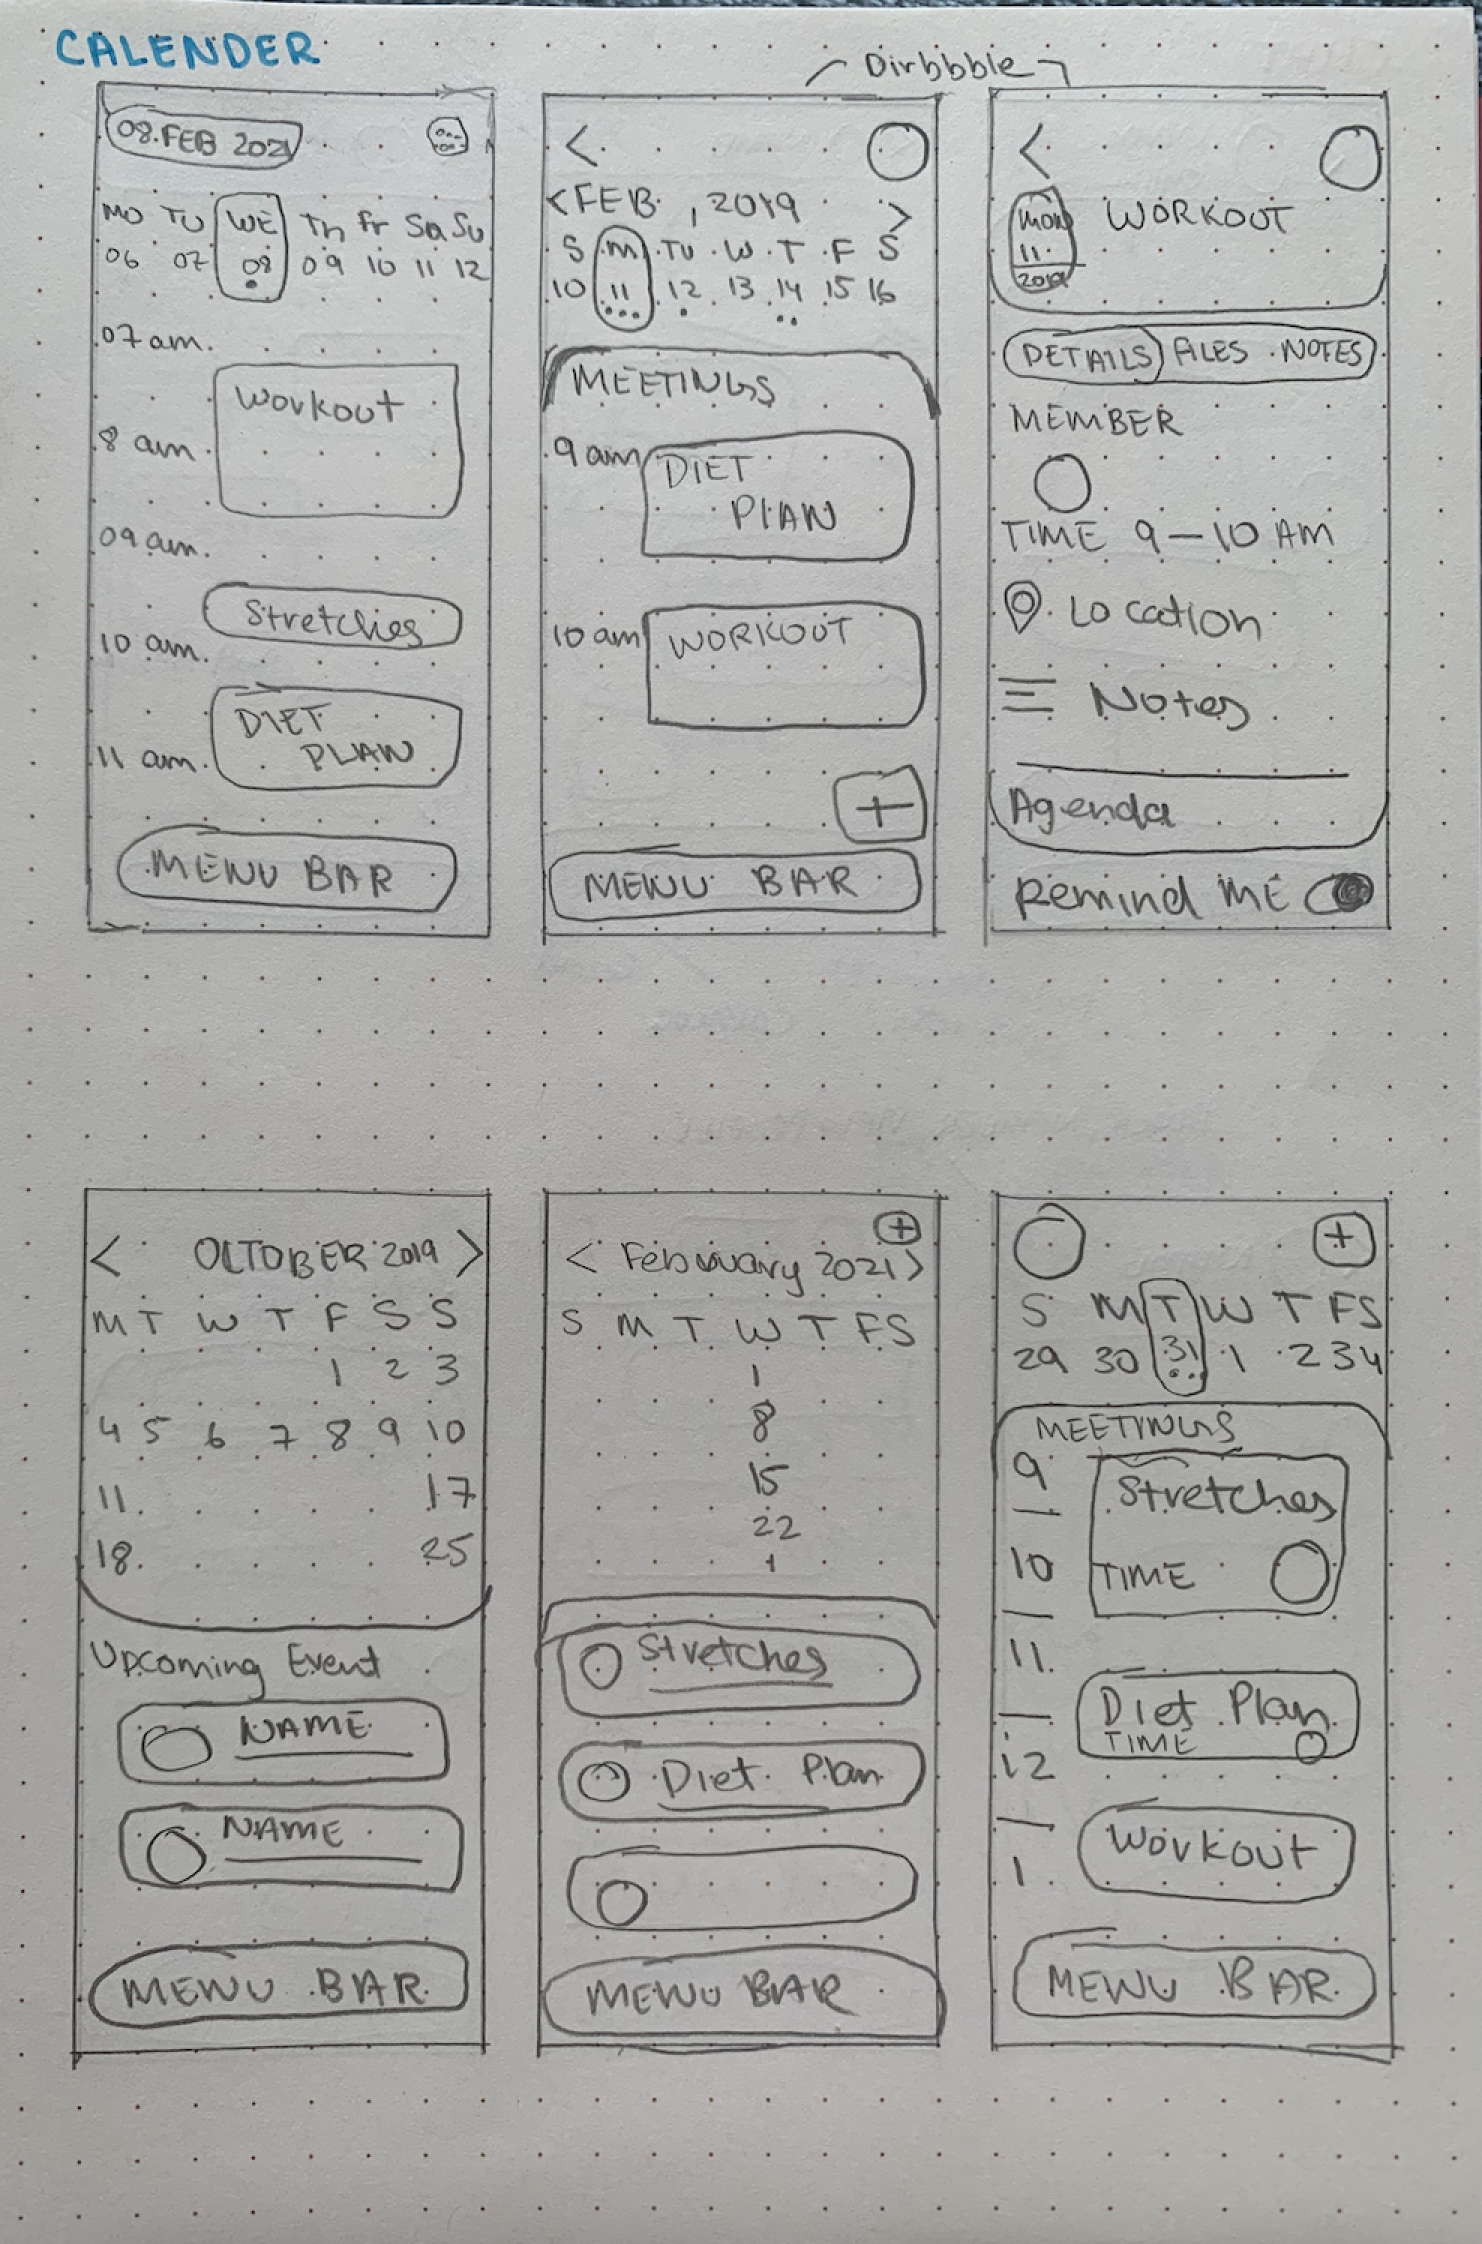 CALENDER
Dirbbble
08.FEB 2021
MO TU WE Th Fr Sa Su
06 07 08 09 10 11 12
07 am.
Workout
8 am.
09 am.
Stretches
10 am.
DIET
PLAN
11 am.
MENU BAR
<
<FEB , 2019 >
S M TU W T F S
10 11 12 13 14 15 16
MEETINGS
9 am
DIET
PLAN
10 am
WORKOUT
+
MENU BAR
<
MON
11
2019
WORKOUT
DETAILS FILES NOTES
MEMBER
TIME 9 – 10 AM
Location
Notes
Agenda
Remind ME
< OCTOBER 2019 >
M T W T F S S
1 2 3
4 5 6 7 8 9 10
11 17
18 25
Upcoming Event
NAME
NAME
MENU BAR
+
< February 2021 >
S M T W T F S
1
8
15
22
Stretches
Diet Plan
MENU BAR
+
S M T W T F S
29 30 31 1 2 3 4
MEETINGS
9
Stretches
10
TIME
11
Diet Plan
TIME
12
Workout
1
MENU BAR